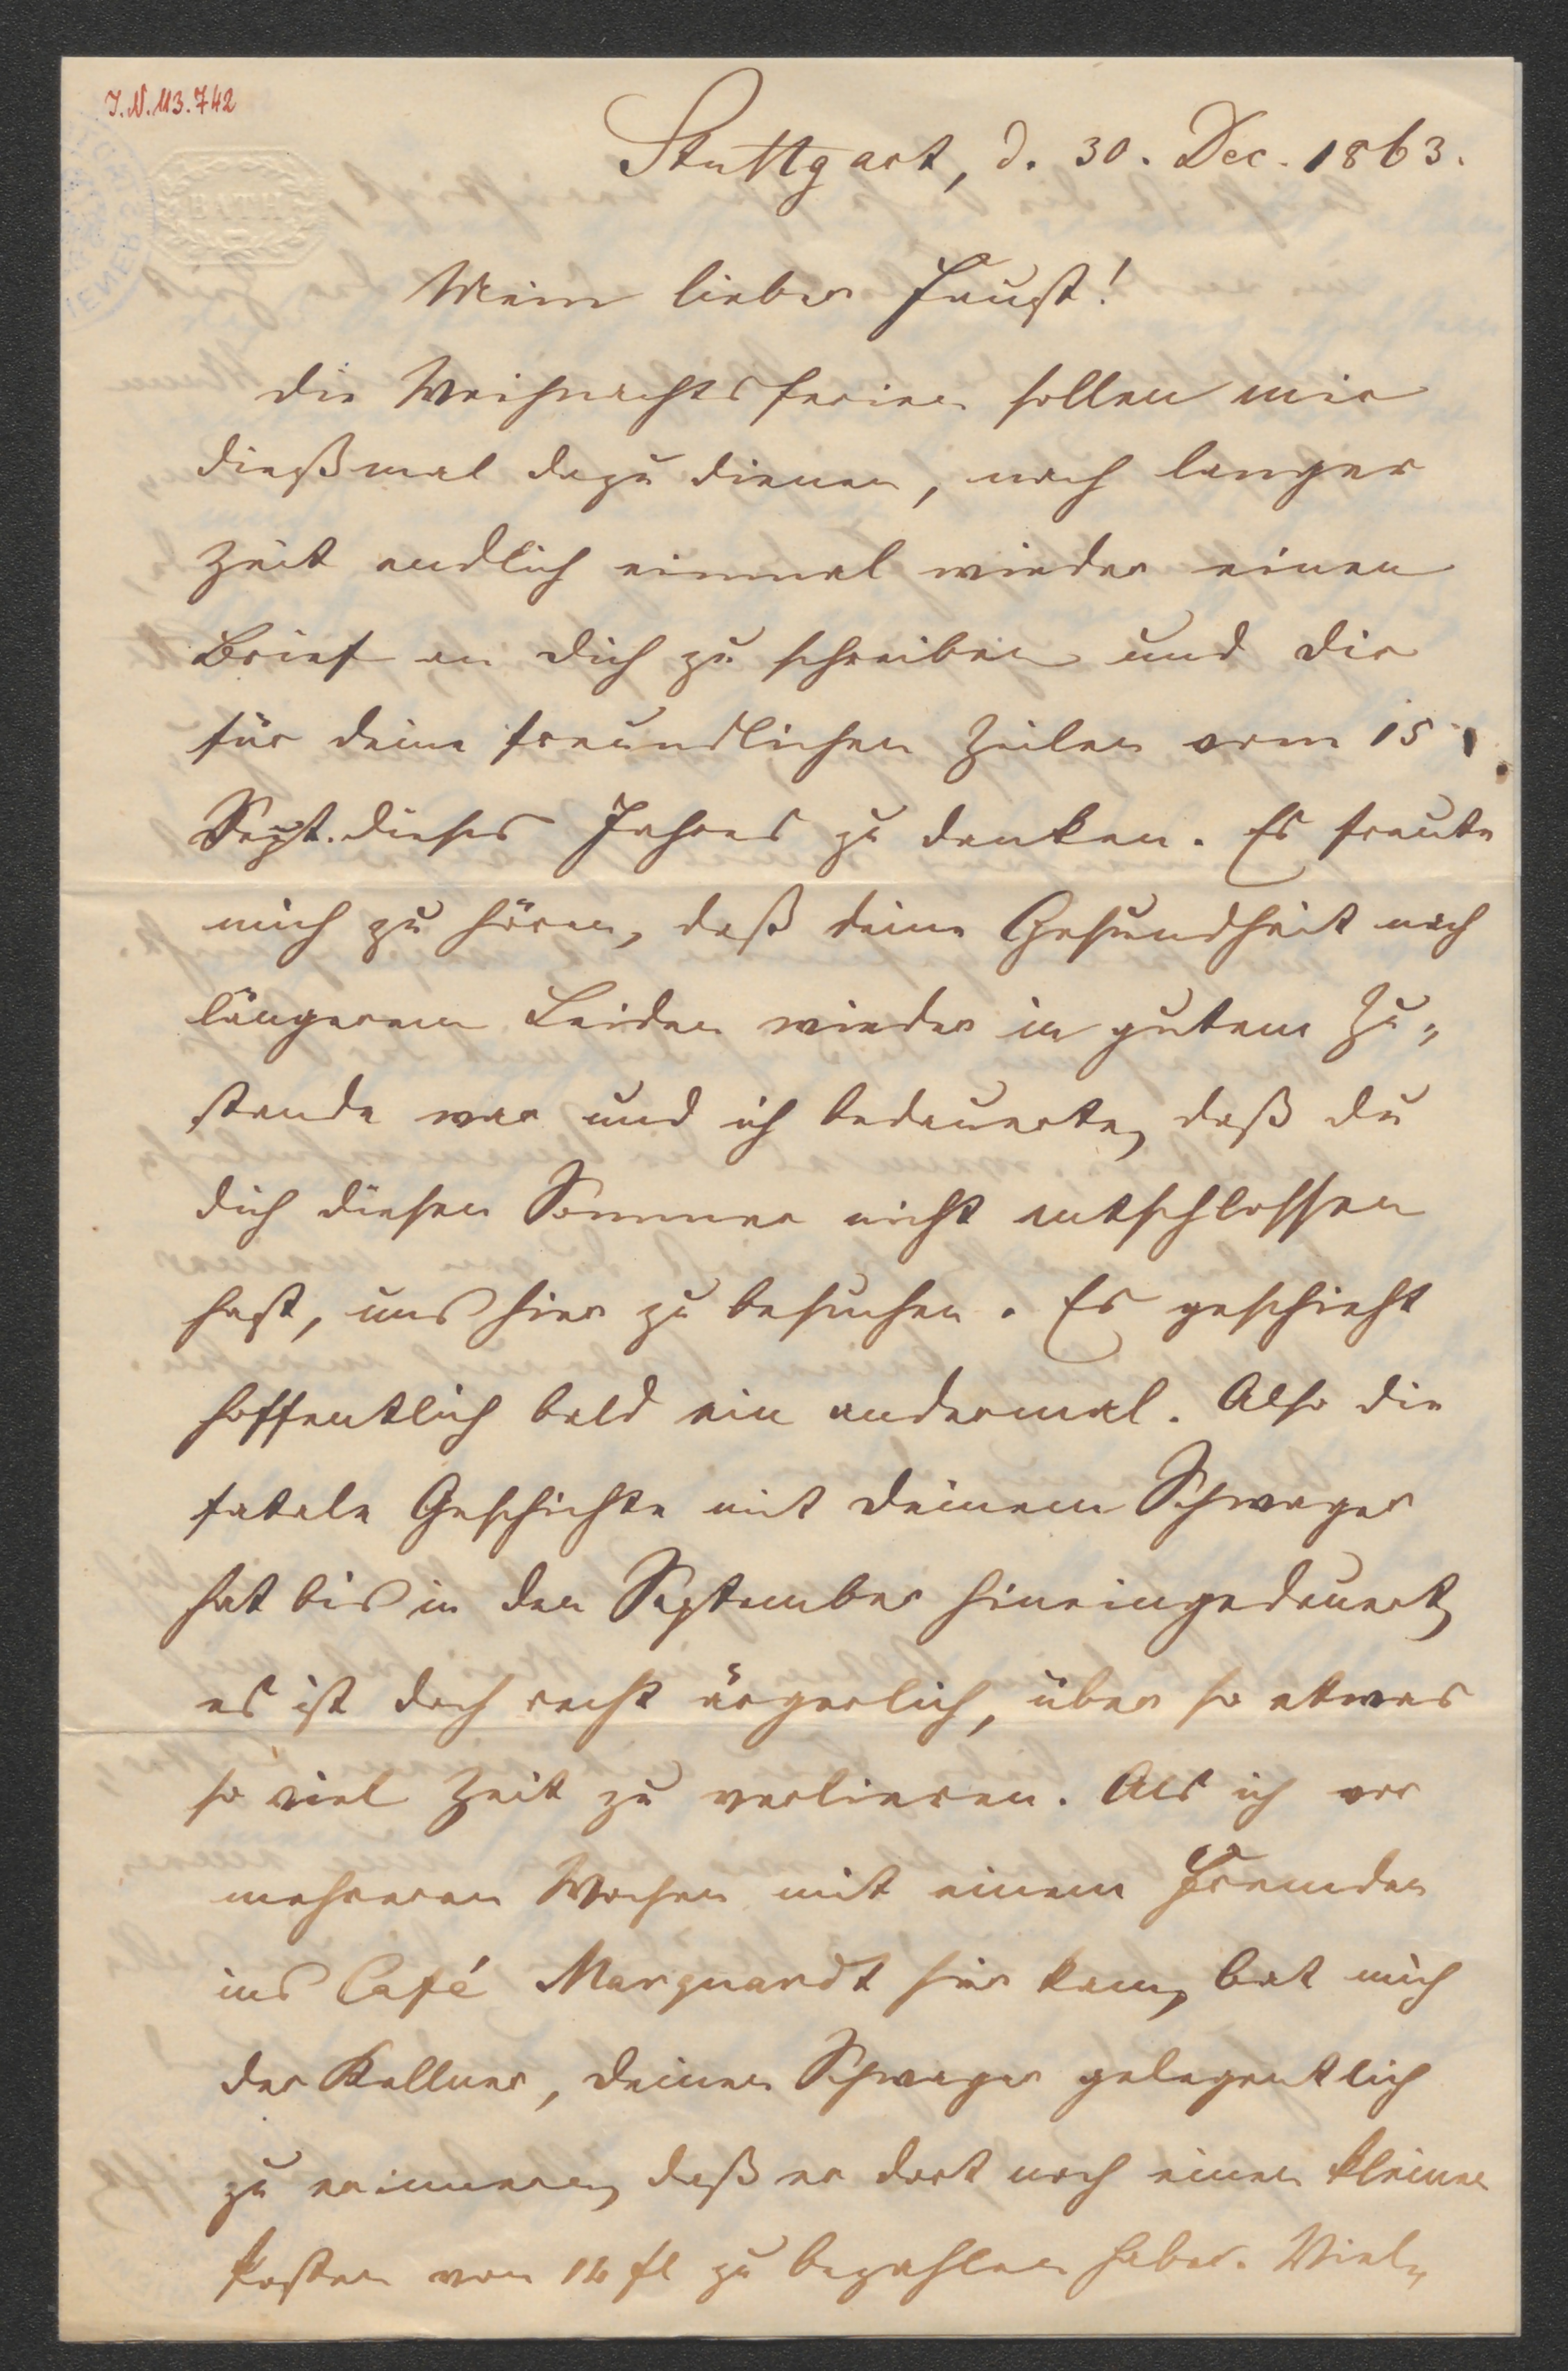 J.N. 113.742
BATH
Stuttgart, d. 30. Dec. 1863.
Mein lieber Faust!
Die Weihnachtsferien sollen mir
dießmal dazu dienen, nach langer
Zeit endlich einmal wieder einen
Brief an dich zu schreiben und dir
für deine freundlichen Zeilen vom 15.
Sept. dieses Jahres zu danken. Es freute
mich zu hören, daß deine Gesundheit nach
längerem Leiden wieder in gutem Zu„
stande war und ich bedauerte, daß du
dich diesen Sommer nicht entschlossen
hast, uns hier zu besuchen. Es geschieht
hoffentlich bald ein andermal. Also die
fatale Geschichte mit deinem Schwager
hat bis in den September hineingedauert,
es ist doch recht ärgerlich, über so etwas
so viel Zeit zu verlieren. Als ich vor
mehreren Wochen mit einem Fremden
ins Café Marquardt hier kam, bat mich
der Kellner, deinen Schwager gelegentlich
zu erinnern, daß er dort noch einen kleinen
Posten von fl zu bezahlen habe. Viel„